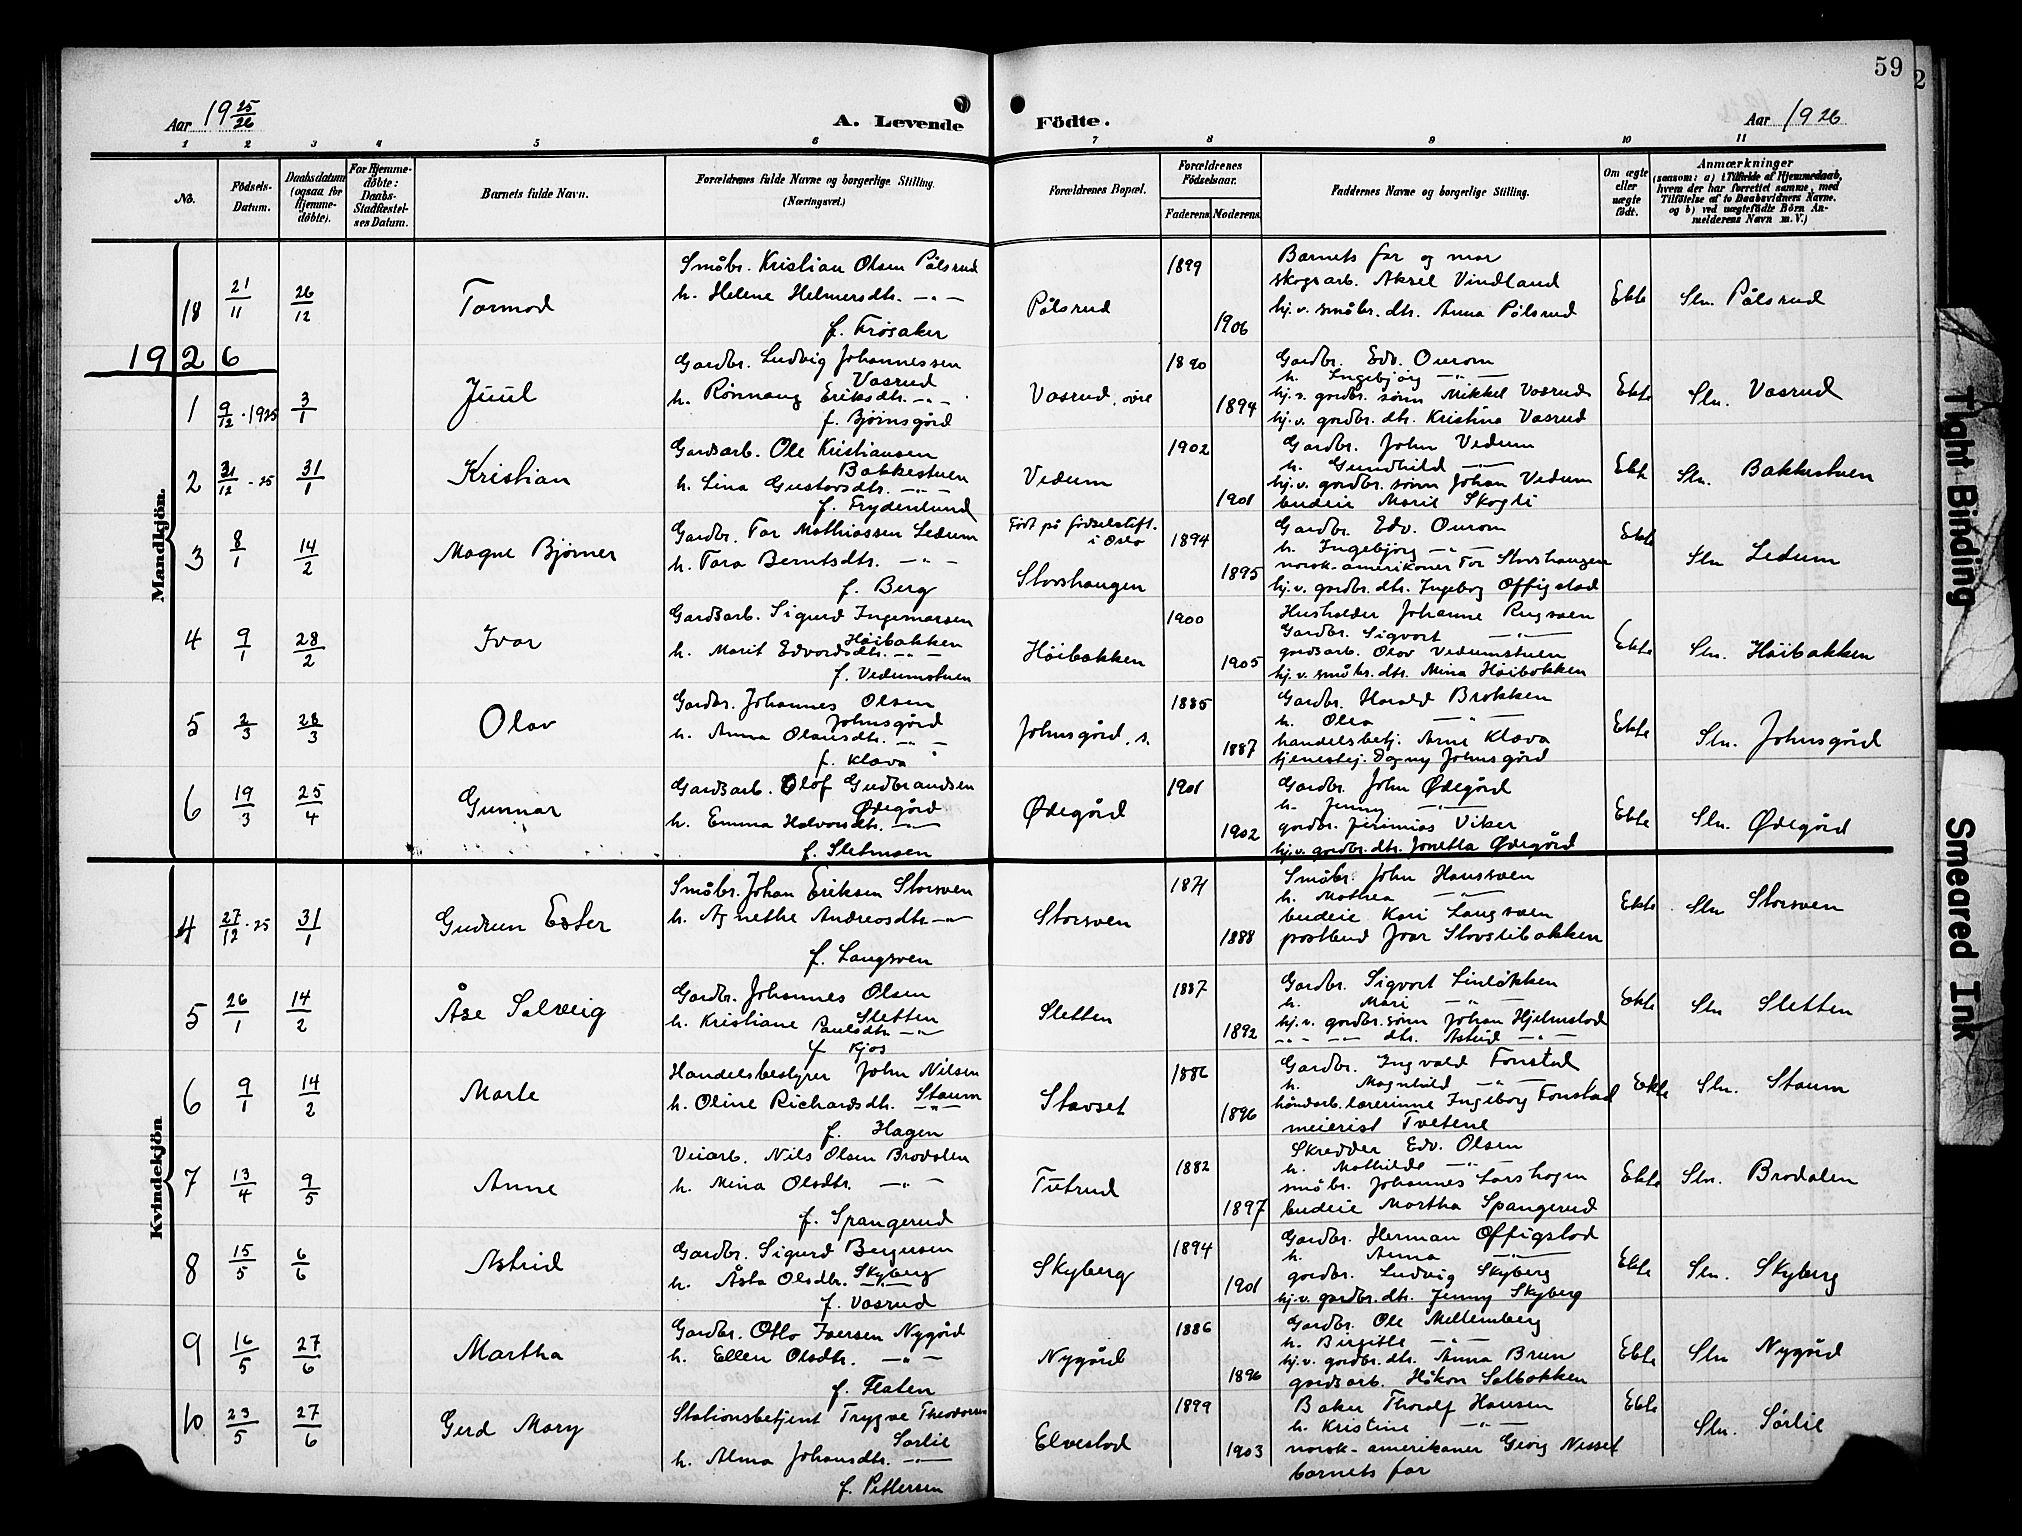 59
2
Aar 19 25/26
A. Levende Födte.
Aar 1926
1 2 3 4 5 6 7 8 9 10 11
No.
Födsels-Datum.
Daabsdatum (ogsaa for Hjemmedöbte).
For Hjemmedöbte: Daabs-Stadfæstelses Datum.
Barnets fulde Navn.
Forældrenes fulde Navne og borgerlige Stilling. (Næringsvei.)
Forældrenes Bopæl.
Forældrenes Födselsaar.
Faderens. Moderens.
Faddernes Navne og borgerlige Stilling.
Om ægte eller uægte födt.
Anmærkninger
(saasom: a) i Tilfælde af Hjemmedaab, hvem der har forrettet samme, med Tilföielse af to Daabsvidners Navne. og b) ved uægtefödte Börn Anmelderens Navn m. V.)
Mandkjön.
18 21/11 26/12 Tormod
Småbr. Kristian Olsen Pålsrud
h. Helene Helmersdtr. -"-
f. Frösaker
Pålsrud 1899 1906
Barnets far og mor
skogsarb. Aksel Vindland
hj.v. småbr. dtr. Anna Pålsrud
Ekte Sln. Pålsrud
1926
1 9/12 1925 3/1 Juul
Gardbr. Ludvig Johannessen
Vasrud
h. Rønnaug Eriksdtr. -"-
f. Bjørnsgård
Vasrud, øvre 1890 1894
Gardbr. Edv. Ourom
h. Ingebjörg -"-
hj.v. gardbr. sønn Mikkel Vasrud
hj.v. gardbr. dtr. Kristina Vasrud
Ekte Sln. Vasrud
2 31/12 25 31/1 Kristian
Gardsarb. Ole Kristiansen
Bakkestuen
h. Lina Gustavsdtr. -"-
f. Frydenlund
Vedum 1902 1901
Gardbr. John Vedum
h. Gunhild -"-
hj.v. gardbr. sønn Johan Vedum
budeie Marit Skogli
Ekte Sln. Bakkestuen
3 8/1 14/2 Magne Bjørner
Gardbr. Tor Mathiassen Ledum
h. Tora Berntsdtr. -"-
f. Berg
Født på fødselsstift. i Oslo
Storshaugen 1894 1895
Gardbr. Edv. Ourom
h. Ingebjörg -"-
norsk-amerikaner Tor Storshaugen
hj.v. gardbr. dtr. Ingeborg Offigstad
Ekte Sln Ledum
4 9/1 28/2 Ivar
Gardsarb. Sigurd Ingemarsen
Høibakken
h. Marit Edvardsdtr. -"-
f. Vedumstuen
Höibakken 1900 1905
Husholder Johanne Rugsveen
Gardbr. Sigvart -"-
gardsarb. Olav Vedumstuen
hj.v. småbr. dtr. Mina Höibakken
Ekte Sln. Höibakken
5 2/3 28/3 Olav
Gardbr. Johannes Olsen
Johnsgård
h. Anna Olausdtr. -"-
f. Klava
Johnsgård, s. 1885 1887
Gardbr. Harald Brokken
h. Olea -"-
handelsbetj. Arne Klava
tjenestej. Dagny Johnsgård
Ekte Sln. Johnsgård
6 19/3 25/4 Gunnar
Gardsarb. Olof Gudbrandsen
Ødegård
h. Emma Halvorsdtr. -"-
f. Sletmoen
Ødegård 1901 1902
Gardbr. John Ødegård
h. Jenny -"-
gardbr. Jerimias Viker
hj.v. gardbr. dtr. Jonetta Ødegård
Ekte Sln. Ødegård
Kvindekjön
4 27/12 25 31/1 Gudrun Ester
Småbr. Johan Eriksen Storsven
h. Agnethe Andreasdtr. -"-
f. Langsven
Storsven 1871 1888
Småbr. John Hansveen
h. Mathea -"-
budeie Kari Langsveen
postbud Ivar Slovstibakken
Ekte Sln Storsven
5 26/1 14/2 Åse Solveig
Gardbr. Johannes Olsen
Sletten
h. Kristiane Paulsdtr. -"-
f. Kjos
Sletten 1887 1892
Gardbr. Sigvart Linløkken
h. Mari -"-
hj.v. gardbr. sønn Johan Hjelmstad
-"- -"- dtr. Astrid -"-
Ekte Sln Sletten
6 9/1 14/2 Marte
Handelsbestyrer John Nilsen
Staum
h. Oline Richardsdtr. -"-
f. Hagen
Stavset 1886 1896
Gardbr. Ingvald Fonstad
h. Magnhild -"-
håndarb. lærerinne Ingeborg Fonstad
meierist Tvetene
Ekte Sln. Staum
7 13/4 9/5 Anne
Veiarb. Nils Olsen Brodalen
h. Mina Olsdtr. -"-
f. Spangerud
Tutrud 1882 1897
Skredder Edv. Olsen
h. Mathilde -"-
småbr. Johannes Larshagen
budeie Martha Spangerud
Ekte Sln. Brodalen
8 15/5 6/6 Astrid
Gardbr. Sigurd Bergersen
Skyberg
h. Åsta Olsdtr. -"-
f. Vasrud
Skyberg 1894 1901
Gardbr. Herman Offigstad
h. Anna -"-
gardbr. Ludvig Skyberg
hj.v. gardbr. dtr. Jenny Skyberg
Ekte Sln. Skyberg
9 16/5 27/6 Martha
Gardbr. Otto Iversen Nygård
h. Ellen Olsdtr. -"-
f. Flaten
Nygård 1886 1896
Gardbr. Ole Mellemberg
h. Birgitte -"-
hj.v. gardbr. dtr. Anna Bruen
gardsarb. Håkon Salbakken
Ekte Sln Nygård
10 23/5 27/6 Gerd Mary
Stationsbetjent Trygve Theodorsen
Sørlie
h. Alma Johansdtr. -"-
f. Pettersen
Elvestad 1899 1903
Baker Thoralf Hansen
h. Kristine -"-
norsk-amerikaner Georg Nesset
barnets far
Ekte Sln. Sørlie
Tight Binding
Smeared Ink